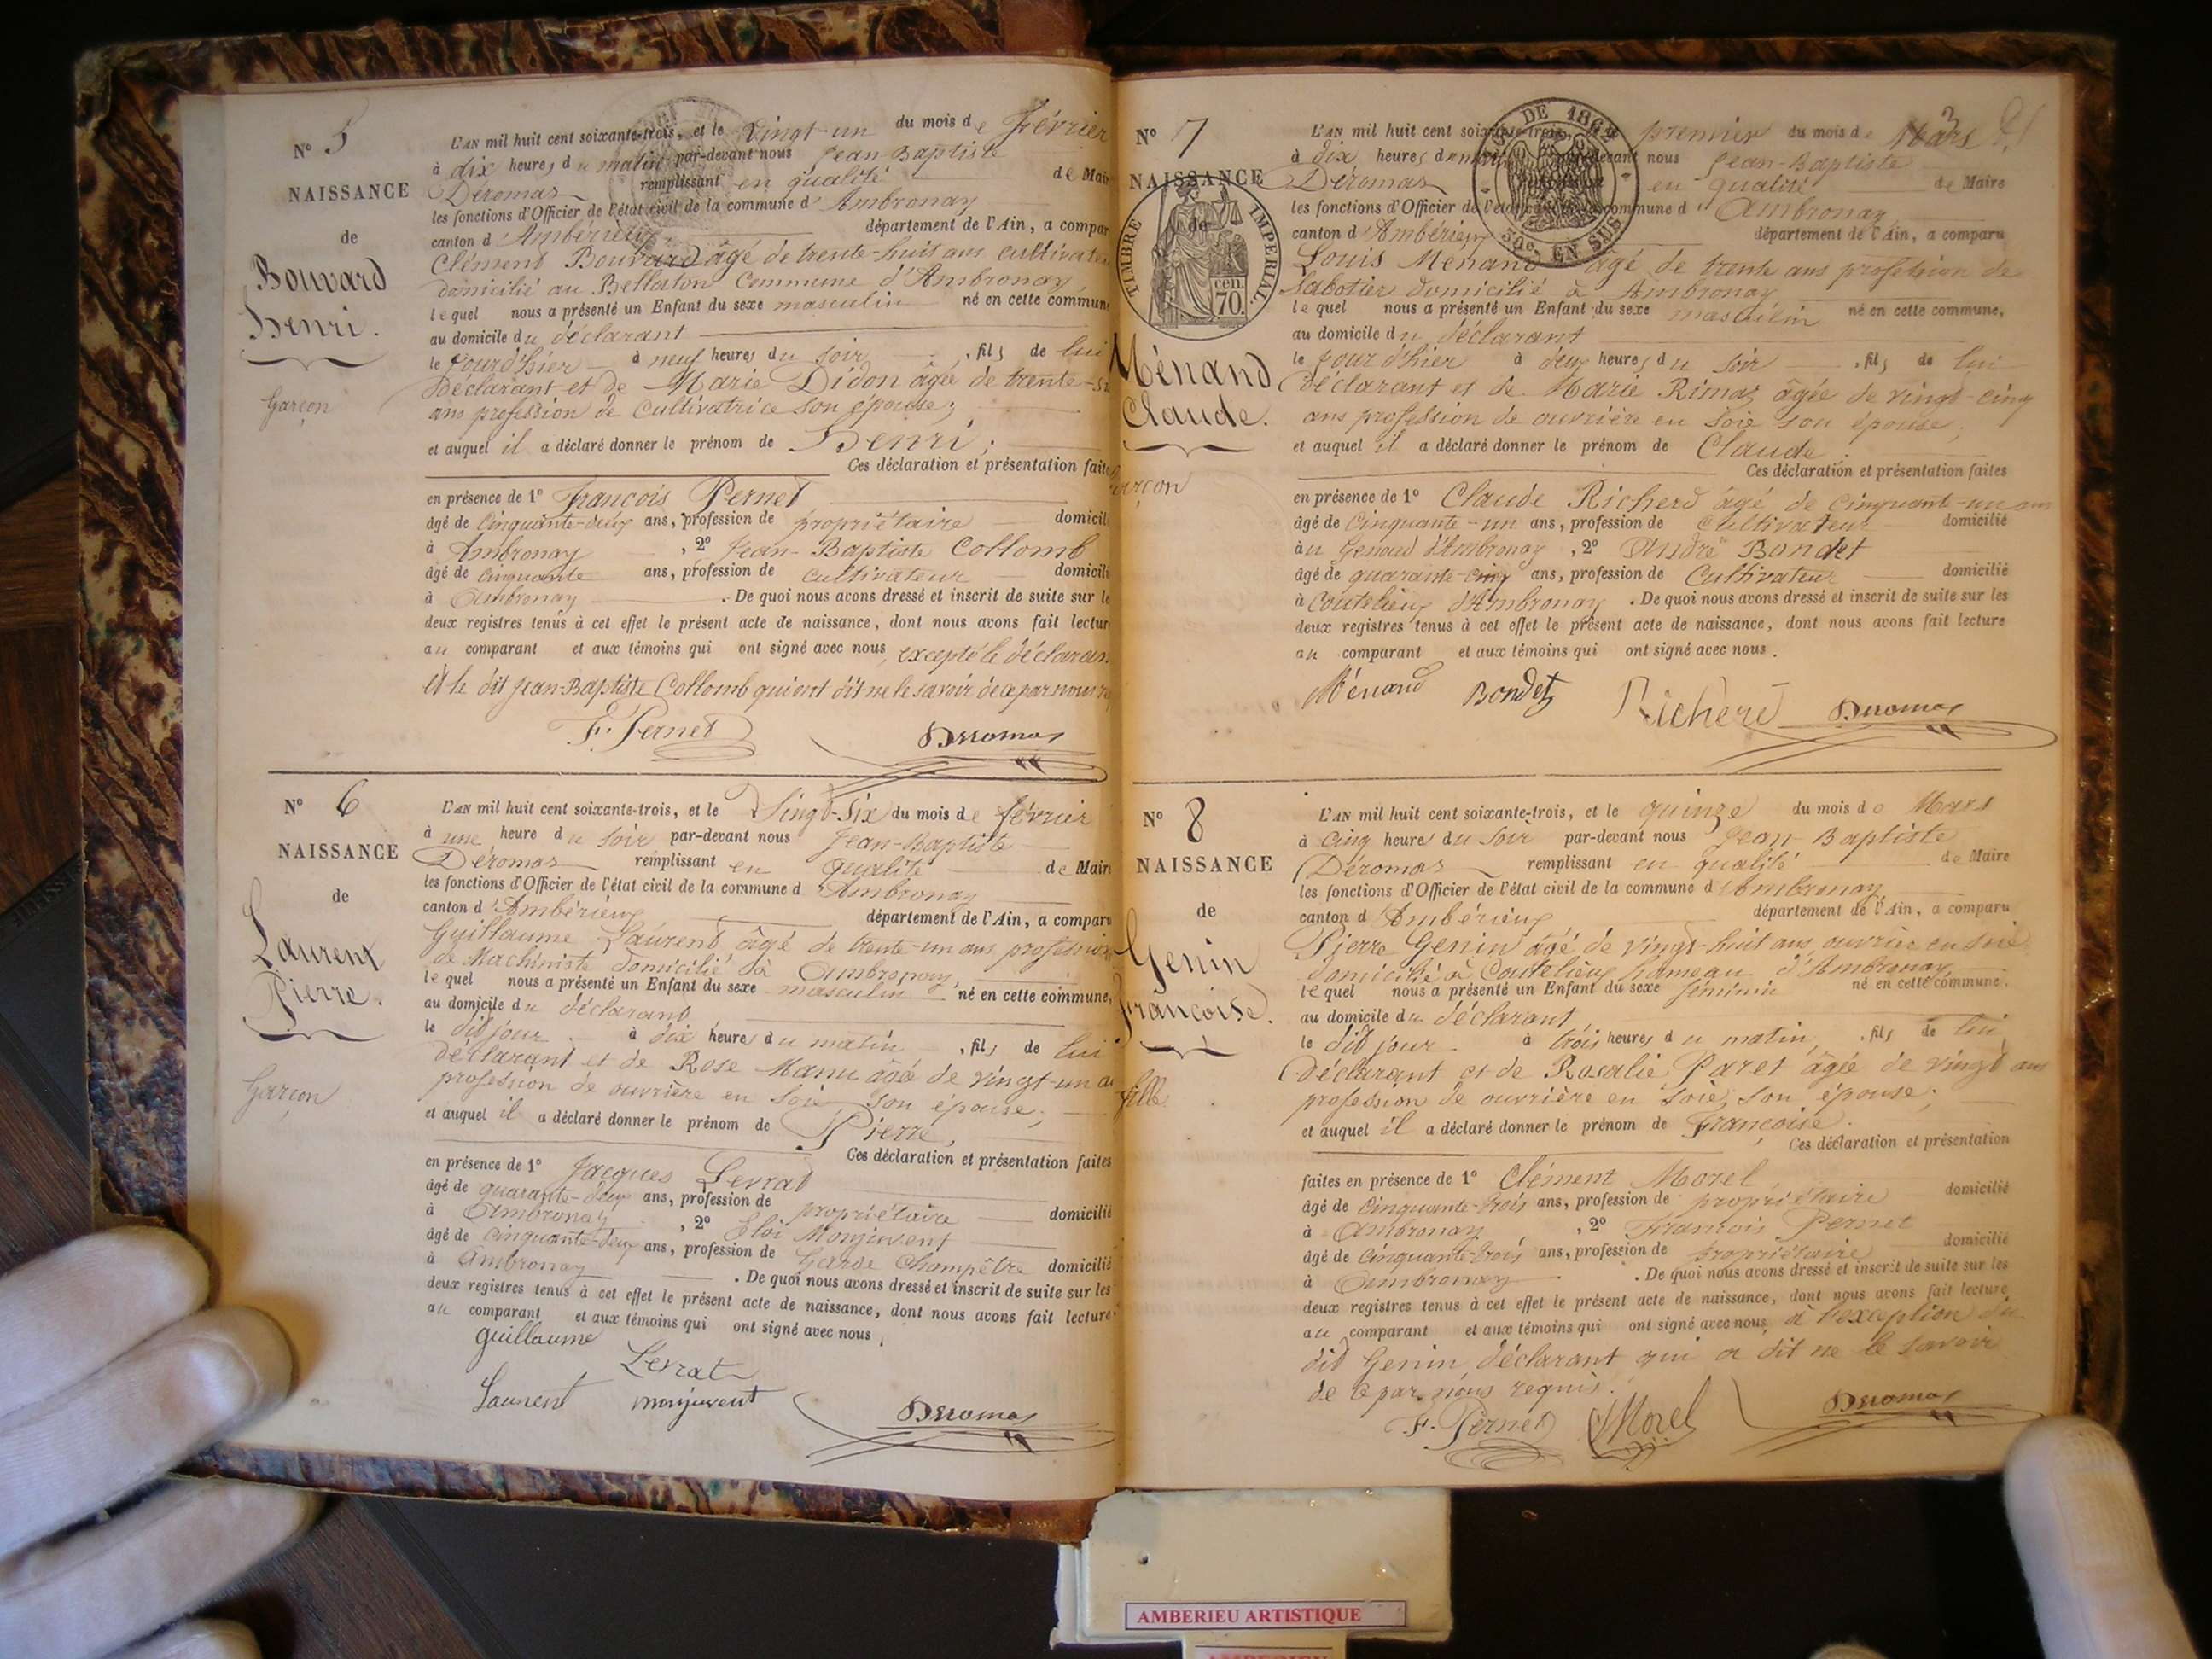 N° 5
NAISSANCE
de
Bouvard
Henri.
Garçon
L'AN mil huit cent soixante-trois, et le Vingt-un du mois de Février
à dix heures du matin par-devant nous Jean-Baptiste
Déromas remplissant en qualité de Mair
les fonctions d'Officier de l'état civil de la commune d'Ambronay
canton d'Ambérieux département de l'Ain, a compar
Clément Bouvard âgé de trente-huit ans cultivate
domicilié au Bellaton Commune d'Ambronay
lequel nous a présenté un Enfant du sexe masculin né en cette commun
au domicile du déclarant
le jour d'hier à neuf heures du soir, fils de lui
déclarant et de Marie Didon âgée de trente-si
ans profession de Cultivatrice son épouse;
et auquel il a déclaré donner le prénom de Henri;
Ces déclaration et présentation faite
en présence de 1° François Pernet
âgé de Cinquante-deux ans, profession de propriétaire domicil
à Ambronay, 2° Jean-Baptiste Collomb
âgé de Cinquante ans, profession de cultivateur domicili
à Ambronay. De quoi nous avons dressé et inscrit de suite sur le
deux registres tenus à cet effet le présent acte de naissance, dont nous avons fait lectur
au comparant et aux témoins qui ont signé avec nous, excepté le déclaran
et le dit Jean-Baptiste Collomb qui ont dit ne le savoir de ce par nous
F. Pernet Deromas
N° 6
NAISSANCE
de
Laurent
Pierre.
Garçon
L'AN mil huit cent soixante-trois, et le Vingt-Six du mois de février
à une heure du soir par-devant nous Jean-Baptiste
Déromas remplissant en qualité de Mair
les fonctions d'Officier de l'état civil de la commune d'Ambronay
canton d'Ambérieux département de l'Ain, a comparu
Guillaume Laurent âgé de trente-un ans profession
de Machiniste domicilié à Ambronay,
lequel nous a présenté un Enfant du sexe masculin né en cette commune,
au domicile du déclarant
le dit jour à dix heures du matin, fils de lui
déclarant et de Rose Manu âgée de vingt-un a
profession de ouvrière en soie son épouse;
et auquel il a déclaré donner le prénom de Pierre,
Ces déclaration et présentation faites
en présence de 1° Jacques Levrat
âgé de quarante-deux ans, profession de propriétaire domicilié
à Ambronay, 2° Eloi Monjuvent
âgé de Cinquante-deux ans, profession de Garde Champêtre domicilié
à Ambronay. De quoi nous avons dressé et inscrit de suite sur les
deux registres tenus à cet effet le présent acte de naissance, dont nous avons fait lecture
au comparant et aux témoins qui ont signé avec nous,
Guillaume Levrat
Laurent monjuvent Deromas
N° 7
NAISSANCE
de
TIMBRE IMPERIAL
70 cen.
Ménand
Claude.
Garçon
3
DE 1862
50c. EN SUS
L'AN mil huit cent soixante-trois, premier du mois de Mars
à dix heures du matin par-devant nous Jean-Baptiste
Déromas en qualité de Maire
les fonctions d'Officier de l'état commune d'Ambronay
canton d'Ambérieux département de l'Ain, a comparu
Louis Ménand âgé de trente ans profession de
Sabotier domicilié à Ambronay
lequel nous a présenté un Enfant du sexe masculin né en cette commune,
au domicile du déclarant
le jour d'hier à deux heures du soir, fils de lui
déclarant et de Marie Rimaz âgée de vingt-cinq
ans profession de ouvrière en soie son épouse;
et auquel il a déclaré donner le prénom de Claude
Ces déclaration et présentation faites
en présence de 1° Claude Richerd âgé de Cinquante-un ans
âgé de Cinquante-un ans, profession de Cultivateur domicilié
au Genoud d'Ambronay, 2° André Bondet
âgé de quarante-cinq ans, profession de Cultivateur domicilié
à Coutelieux d'Ambronay. De quoi nous avons dressé et inscrit de suite sur les
deux registres tenus à cet effet le présent acte de naissance, dont nous avons fait lecture
au comparant et aux témoins qui ont signé avec nous.
Ménand Bondet Richerd Deromas
N° 8
NAISSANCE
de
Genin
Françoise.
fille
L'AN mil huit cent soixante-trois, et le quinze du mois de Mars
à Cinq heures du Soir par-devant nous Jean-Baptiste
Déromas remplissant en qualité de Maire
les fonctions d'Officier de l'état civil de la commune d'Ambronay
canton d'Ambérieux département de l'Ain, a comparu
Pierre Genin âgé de vingt-huit ans ouvrier en soie
domicilié à Coutelieux hameau d'Ambronay
lequel nous a présenté un Enfant du sexe féminin né en cette commune.
au domicile du déclarant
le dit jour à trois heures du matin, fils de lui
déclarant et de Rosalie Paret âgée de vingt ans
profession de ouvrière en soie, son épouse;
et auquel il a déclaré donner le prénom de Françoise.
Ces déclaration et présentation
faites en présence de 1° Clément Morel
âgé de Cinquante-trois ans, profession de propriétaire domicilié
à Ambronay, 2° François Pernet
âgé de Cinquante-trois ans, profession de propriétaire domicilié
à Ambronay. De quoi nous avons dressé et inscrit de suite sur les
deux registres tenus à cet effet le présent acte de naissance, dont nous avons fait lecture
au comparant et aux témoins qui ont signé avec nous, à l'exception du
dit Genin déclarant qui a dit ne le savoir
de ce par nous requis.
F. Pernet CMorel Deromas
AMBERIEU ARTISTIQUE